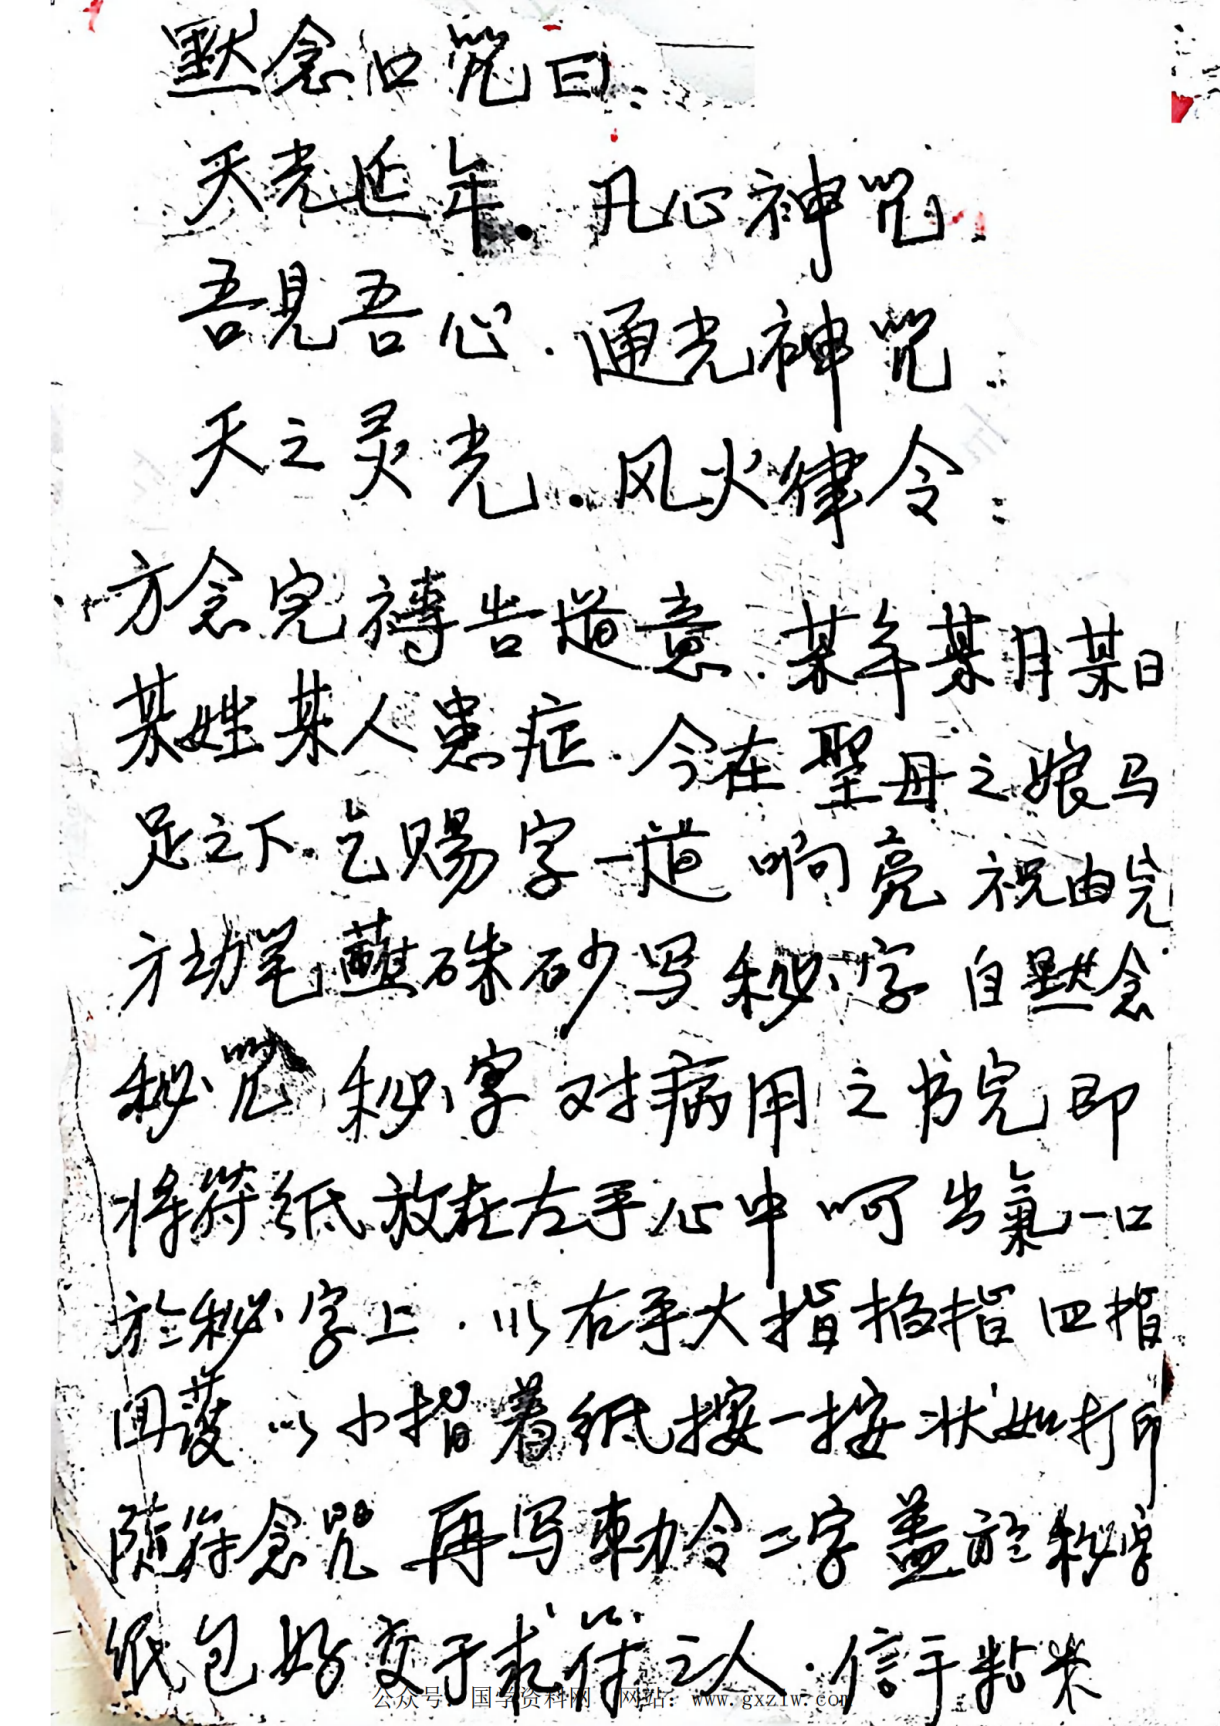 默念口咒曰：
天光延年．凡心神咒．
吾見吾心．通光神咒
天之灵光．风火律令
方念完祷告道意．某年某月某日
某姓某人患症．今在聖母之娘马
足之下．乞赐字一道响亮祝由完
方动笔蘸硃砂写秘字自默念
秘咒秘字对病用之书完即
将符纸放在左手心中呵出氣一口
於秘字上．以右手大指掐指四指
围護以小指着纸按一按状如打印
随符念咒再写勅令二字盖於秘字
纸包好交于求符之人．信手粘米
公众号：国学资料网 网站：www.gxzlw.com